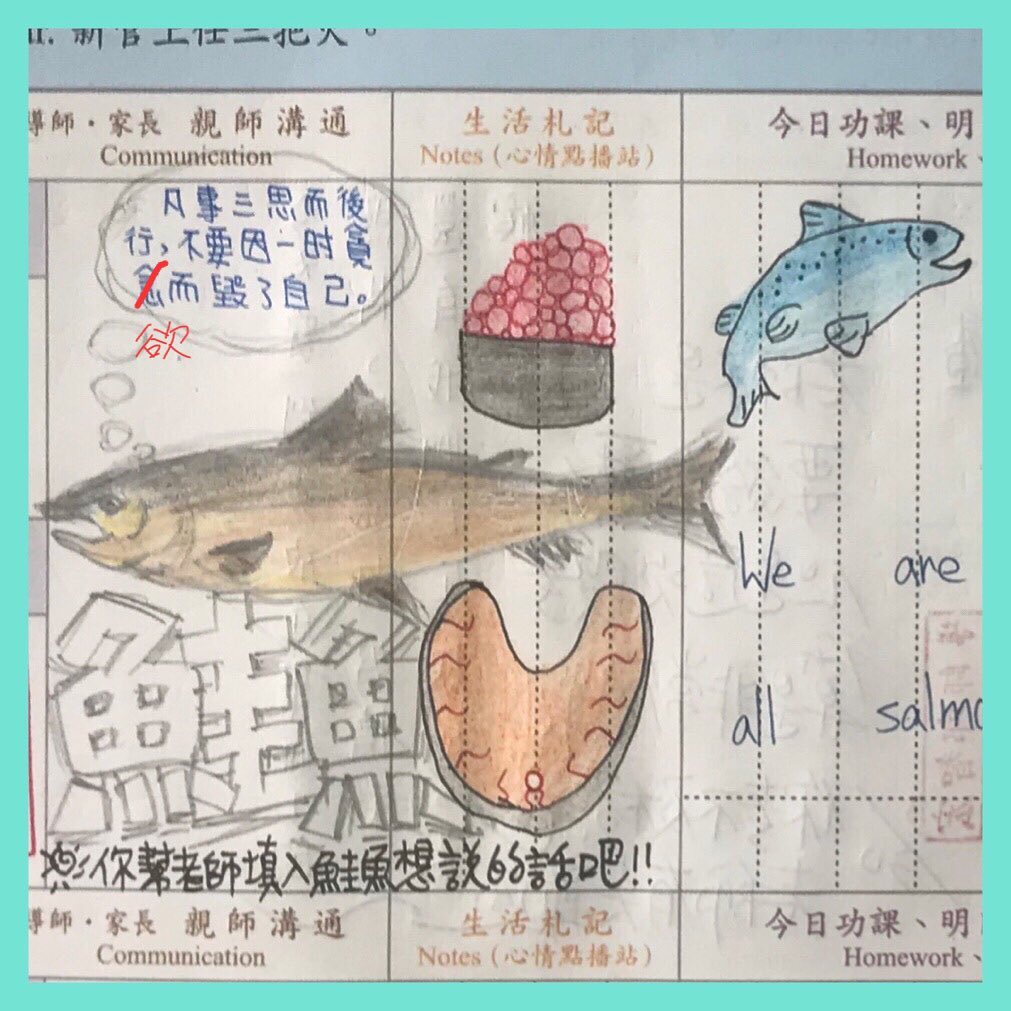 新官上任三把火。
導師・家長 親師溝通
Communication
生活札記
Notes (心情點播站)
今日功課、明
Homework、
凡事三思而後
行,不要因一时貪
念而毀了自己。
欲
鮭魚
We are
all salmo
你幫老師填入鮭魚想說的話吧!!
導師・家長 親師溝通
Communication
生活札記
Notes (心情點播站)
今日功課、明
Homework、